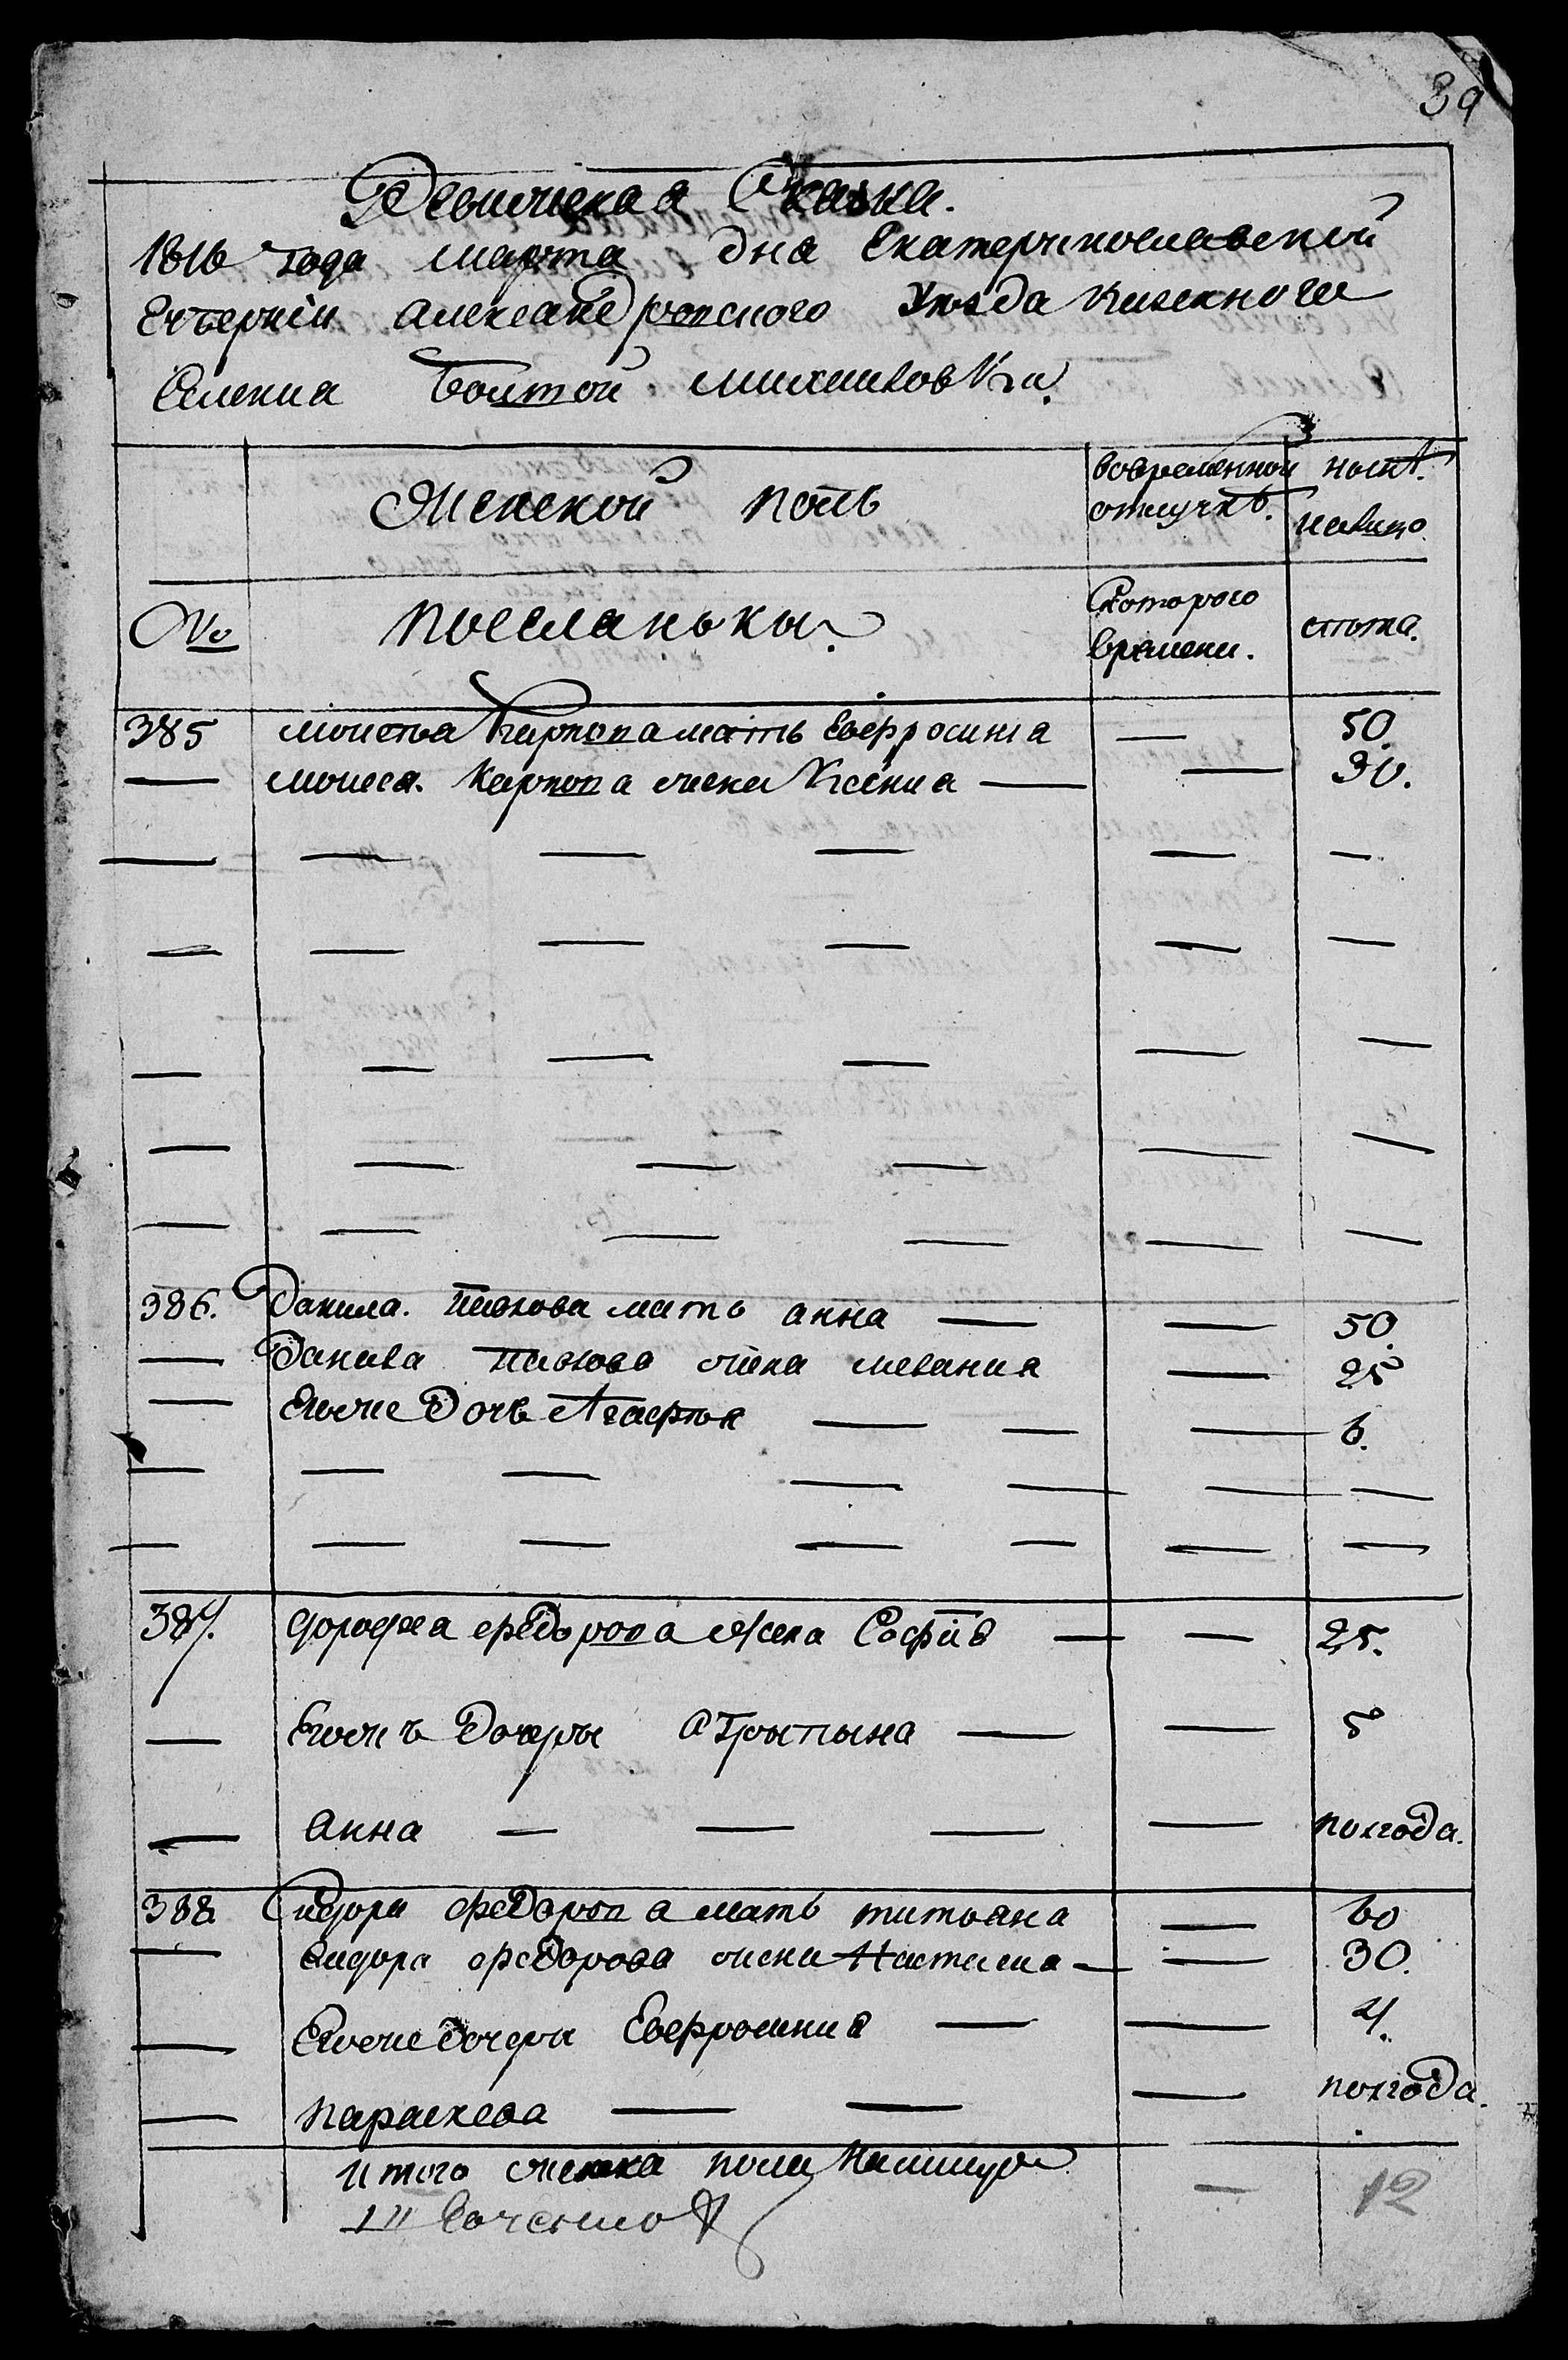 39
Ревижская Сказка.
1816 года марта дня Екатеринославской
Губернiи Александровского Уезда Казенного
Селения Болшой Михаиловки.
Женской полъ
вовременной отлучкѣ.
нынѣ налицо.
№
поселаньки
Скоторого времени.
лѣта.
385 моисея Карпова мать Евфросиния — 50
— моисея. Карпова жена Ксения — — 30.
386. Данила. Павлова мать анна — — 50
— Данила Павлова жена мелания — 25
— Егоже Дочь Агафья — — — 6.
387. дорофея федорова жена Софiя — — 25.
— Егожъ Дочеры агрыпына — — 5
— анна — — — — полгода.
388 Сидора федорова мать титьяна — 60
— Сидора федорова жена Настасиа — — 30.
— Егоже дочеры Евфросиния — — 4.
— параскева — — — полгода.
Итого женска пола налицо — 12